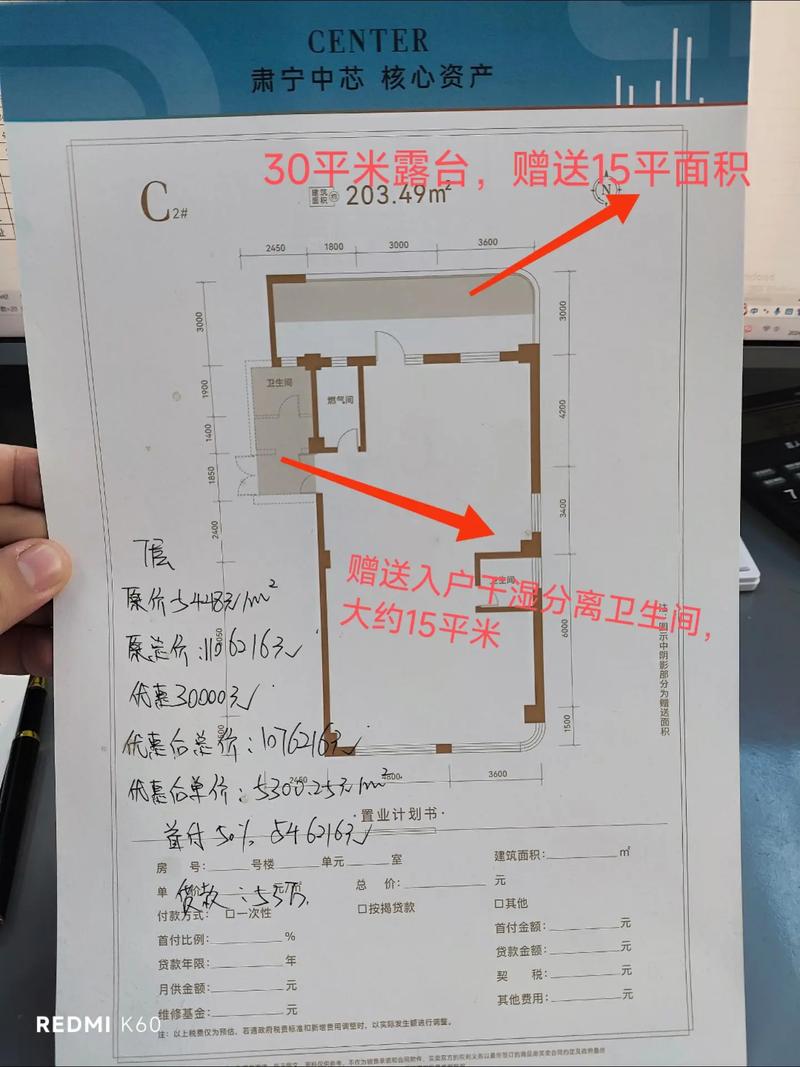 CENTER
肃宁中芯 核心资产
30平米露台，赠送15平面积
C2#
建筑面积 约 203.49m²
N
2450 1800 3000 3600
3000
1900
1400
1850
2400
3000
4200
3400
6000
1500
卫生间
燃气间
卫生间
赠送入户干湿分离卫生间，
大约15平米
注：图示中阴影部分为赠送面积
7层
原价5448元/m²
原总价：1106216元
优惠30000元
优惠后总价：1076216元
优惠后单价：5300.25元/m²
首付50% 546216元
贷款：53万
3600
·置业计划书·
房 号：号楼 单元 室
建筑面积： ㎡
单 元/㎡
总 价： 元
付款方式：□一次性 □按揭贷款 □其他
首付比例： %
首付金额： 元
贷款年限： 年
贷款金额： 元
月供金额： 元
契 税： 元
维修基金： 元
其他费用： 元
注：以上税费仅为预估，若遇政府税费标准和新增费用调整时，以实际发生额进行调整。
REDMI K60